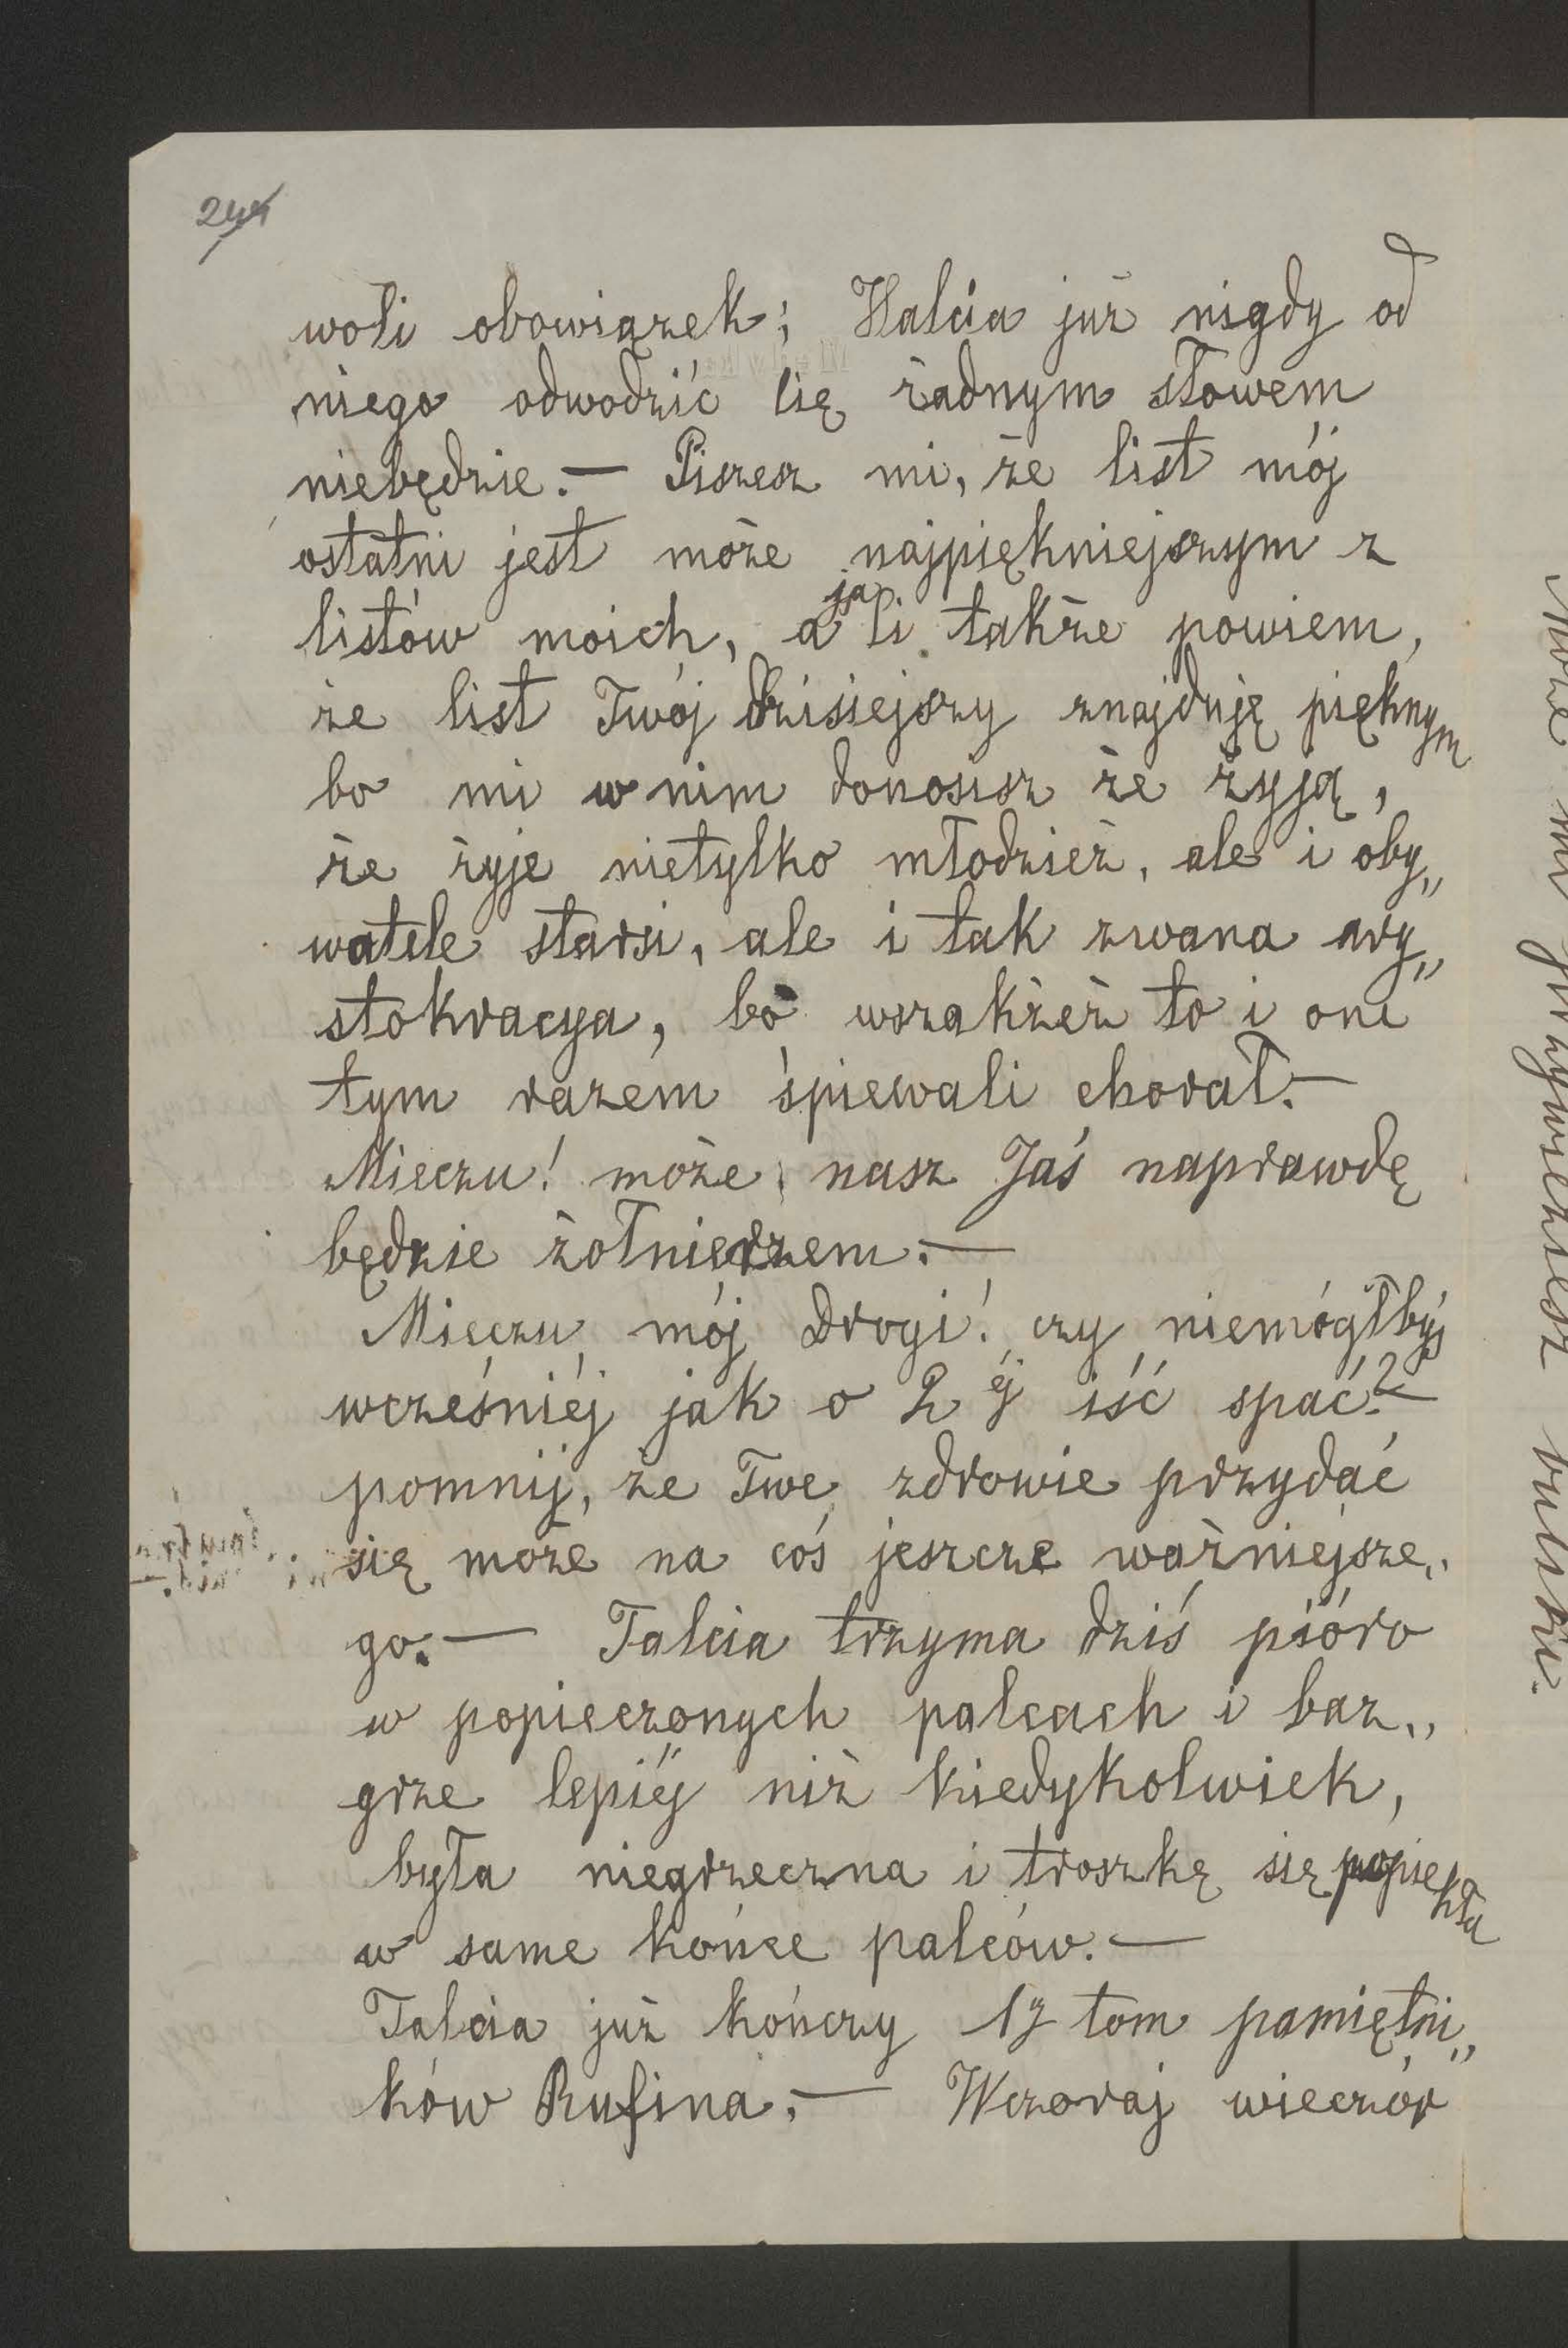 244
woli obowiązek; Halcia już nigdy od
niego odwodzić Cię żadnym słowem
niebędzie. — Piszesz mi, że list mój
ostatni jest może najpiękniejszym z
listów moich, a ja Ci także powiem,
że list Twój dzisiejszy znajduję pięknym
bo mi w nim donosisz że żyją,
że żyje nietylko młodzież, ale i oby„
watele starsi, ale i tak zwana ary„
stokracya, bo wszakżeż to i oni
tym razem śpiewali chorał. —
Mieczu! może nasz Jaś naprawdę
będzie żołnierzem. —
Mieczu mój drogi! czy niemógłbyś
wcześniéj jak o 2 éj iść spać? —
pomnij, że Twe zdrowie przydać
się może na coś jeszcze ważniejsze„
go. — Talcia trzyma dziś pióro
w popieczonych palcach i baz„
grze lepiéj niż kiedykolwiek,
była niegrzeczna i troszkę się popiekła
w same końce palców. —
Talcia już kończy 1y tom pamiętni„
ków Rufina. — Wczoraj wieczór
może mi przywieziesz bułki.